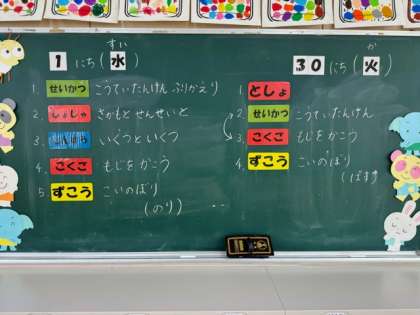 すい
1にち(水)
1. せいかつ こうていたんけん ふりかえり
2. しょしゃ さかもとせんせいと
3. いくつといくつ
4. こくご もじをかこう
5. ずこう こいのぼり
(のり)
か
30にち(火)
1. としょ
2. せいかつ こうていたんけん
3. こくご もじをかこう
4. ずこう こいのぼり